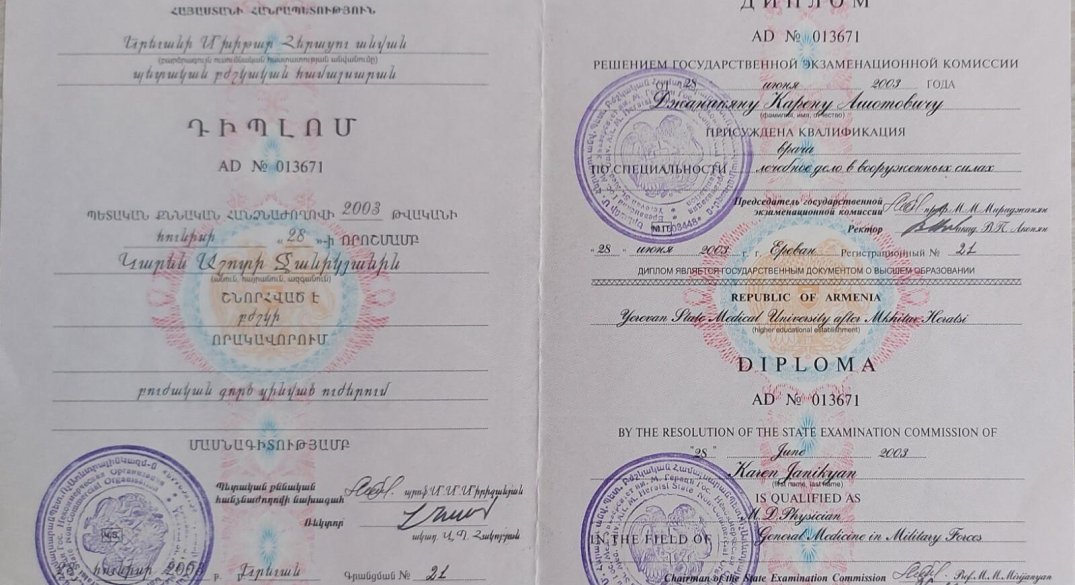 ՀԱՅԱՍՏԱՆԻ ՀԱՆՐԱՊԵՏՈՒԹՅՈՒՆ
Երևանի Մխիթար Հերացու անվան
(բարձրագույն ուսումնական հաստատության անվանումը)
պետական բժշկական համալսարան
ԴԻՊԼՈՄ
AD № 013671
ՊԵՏԱԿԱՆ ՔՆՆԱԿԱՆ ՀԱՆՁՆԱԺՈՂՈՎԻ 2003 ԹՎԱԿԱՆԻ
հունիսի «28»-ի ՈՐՈՇՄԱՄԲ
Կարեն Աշոտի Ջանիկյանին
(անուն, հայրանուն, ազգանուն)
ՇՆՈՐՀՎԱԾ Է
բժշկի
ՈՐԱԿԱՎՈՐՈՒՄ
բուժական գործ զինված ուժերում
ՄԱՍՆԱԳԻՏՈՒԹՅԱՄԲ
Պետական քննական
հանձնաժողովի նախագահ պրոֆ. Մ.Մ. Միրիջանյան
Ռեկտոր
ակադ. Վ.Պ. Հակոբյան
հունիսի 2003 թ. ք. Երևան Գրանցման № 21
ДИПЛОМ
AD № 013671
РЕШЕНИЕМ ГОСУДАРСТВЕННОЙ ЭКЗАМЕНАЦИОННОЙ КОМИССИИ
ОТ 28 июня 2003 ГОДА
Джаникяну Карену Ашотовичу
(фамилия, имя, отчество)
ПРИСУЖДЕНА КВАЛИФИКАЦИЯ
врача
ПО СПЕЦИАЛЬНОСТИ лечебное дело в вооруженных силах
Председатель государственной
экзаменационной комиссии проф. М.М.Мириджанян
Ректор акад. В.П. Акопян
"28" июня 2003 г. г. Ереван Регистрационный № 21
ДИПЛОМ ЯВЛЯЕТСЯ ГОСУДАРСТВЕННЫМ ДОКУМЕНТОМ О ВЫСШЕМ ОБРАЗОВАНИИ
REPUBLIC OF ARMENIA
Yerevan State Medical University after Mkhitar Heratsi
(higher educational establishment)
DIPLOMA
AD № 013671
BY THE RESOLUTION OF THE STATE EXAMINATION COMMISSION OF
"28" June 2003
Karen Janikyan
(first name, last name)
IS QUALIFIED AS
M.D.Physician
IN THE FIELD OF General Medicine in Military Forces
Chairman of the State Examination Commission Prof.M.M.Mirijanyan